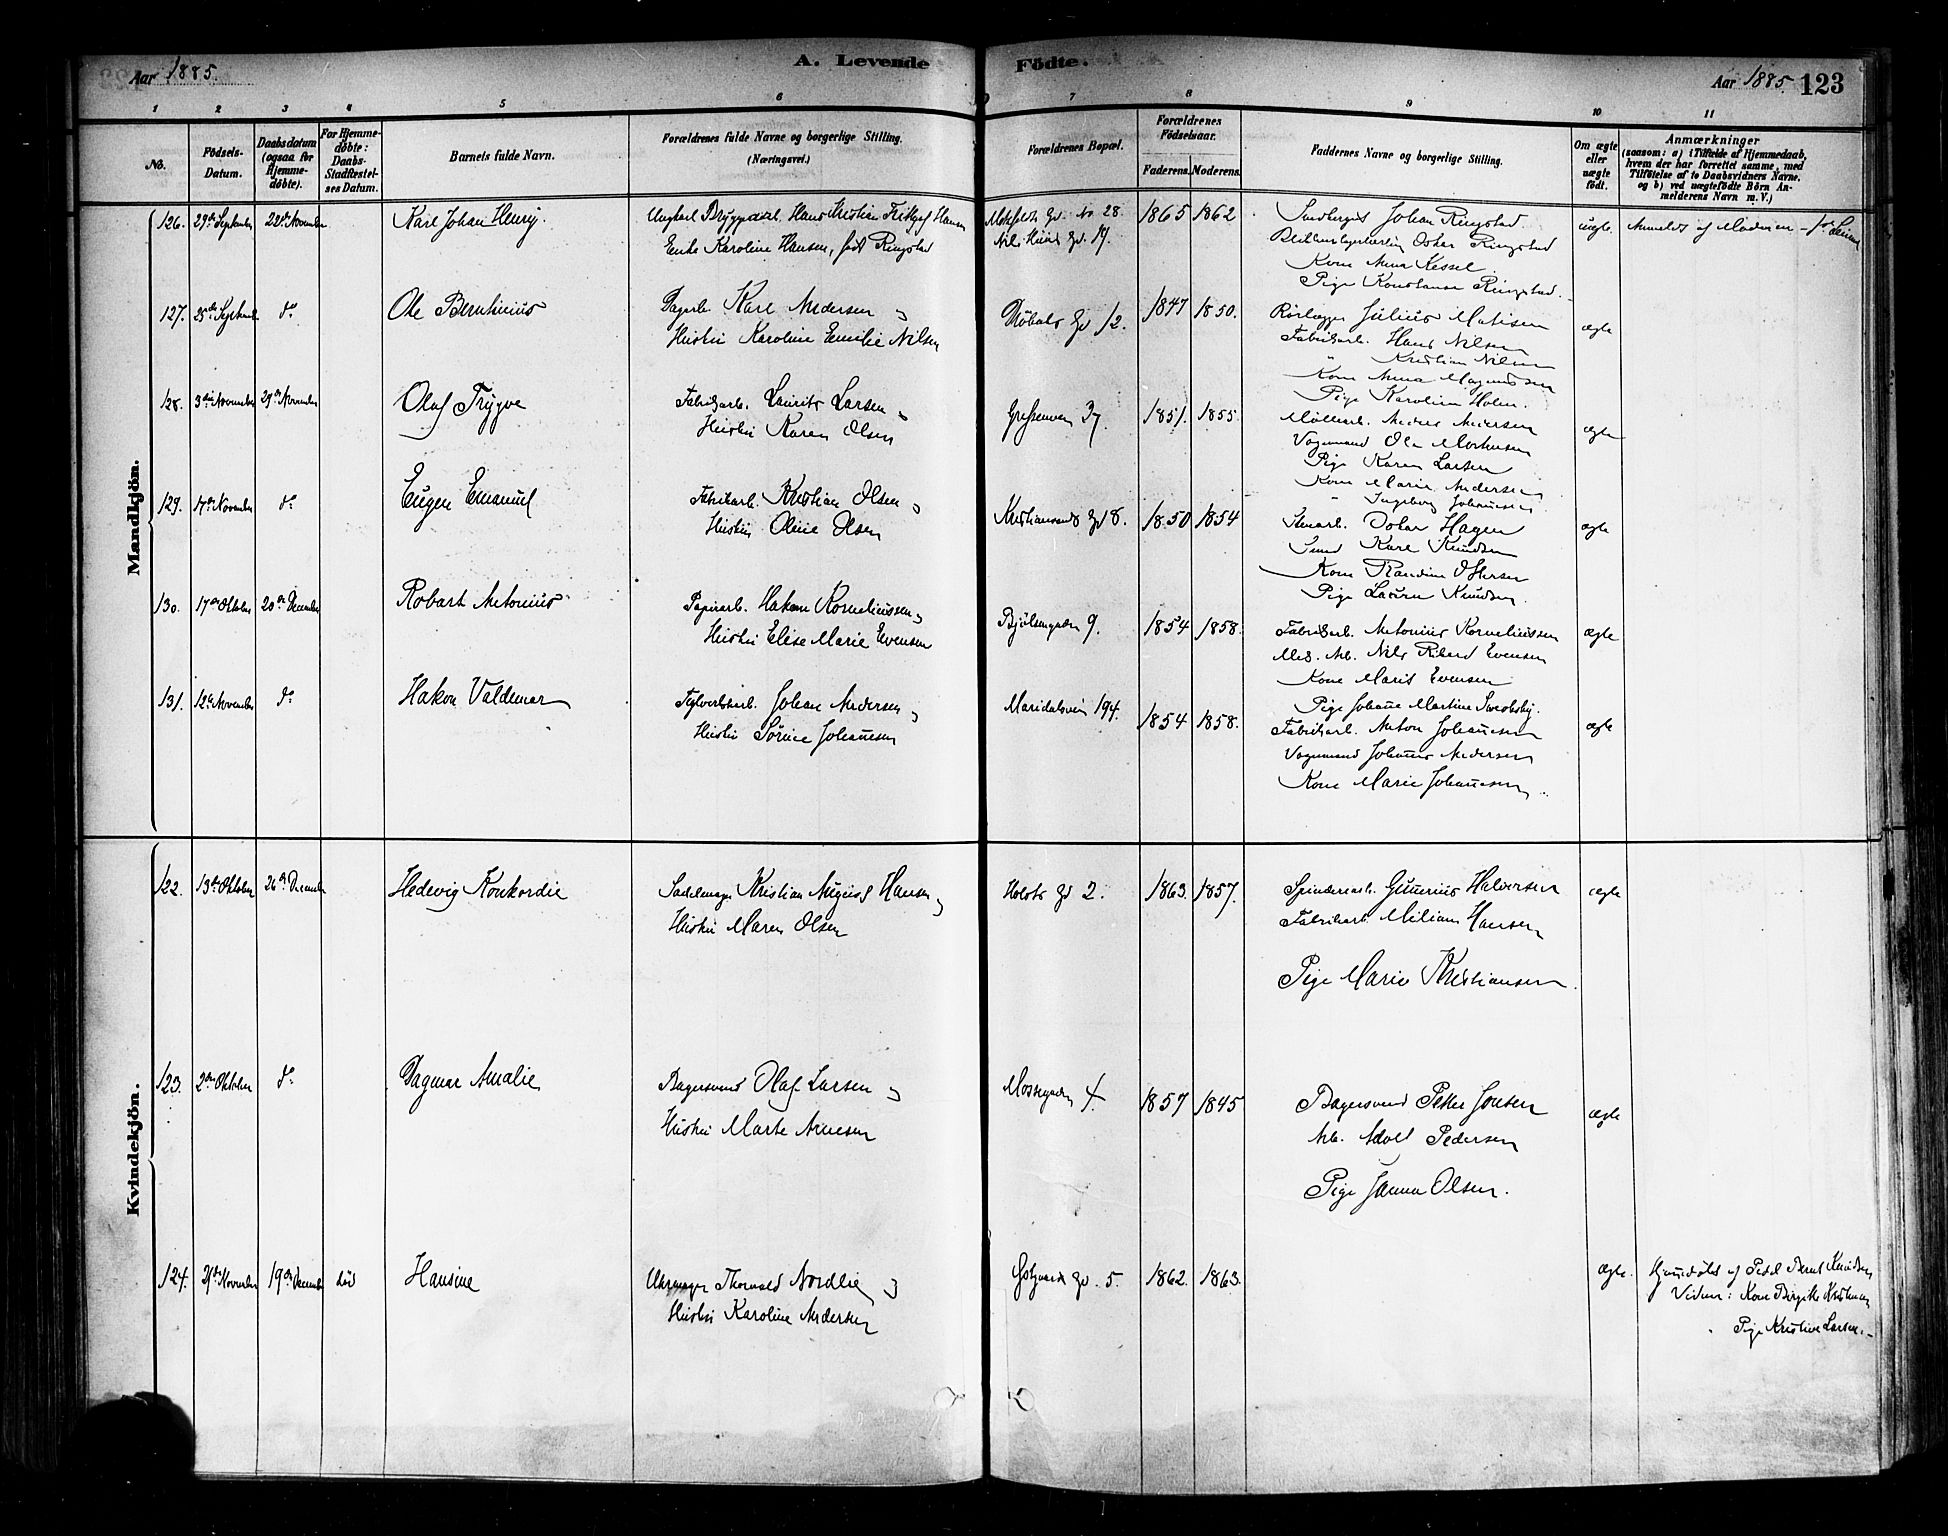 Aar 1885.
A. Levende Födte.
Aar 1885. 123
1 2 3 4 5 6 7 8 9 10 11
No.
Födsels-Datum.
Daabsdatum (ogsaa for Hjemme-döbte).
For Hjemme-döbte: Daabs-Stadfæstel-ses Datum.
Barnets fulde Navn.
Forældrenes fulde Navne og borgerlige Stilling. (Næringsvei.)
Forældrenes Bopæl.
Forældrenes Födselsaar.
Faderens. Moderens.
Faddernes Navne og borgerlige Stilling.
Om ægte eller uægte födt.
Anmærkninger
(saasom: a) i Tilfælde af Hjemmedaab,
hvem der har forrettet samme, med
Tilföielse af to Daabsvidners Navne.
og b) ved uægtefödte Börn An-
melderens Navn m. V.)
Mandkjön.
126. 29de September 22de November Karl Johan Henry.
Ungkarl Bryggearb. Hans Kristian Fridtjof Hansen
Enke Karoline Hansen, født Ringstad
No 28.
Gd. 19.
1865 1862
Johan Ringstad
Oskar Ringstad
Kone Anna Kessel
Pige Konstanse Ringstad.
uægte. Anmeldt af Moderen
127. 25de September do Ole Bernhinius
Dagarb. Karl Andersen og
Hustru Karoline Emilie Nilsen
Gd 12. 1847 1850.
Rørlægger Julius Matisen
Fabrikarb. Hans Nilsen
" Kristian Nilsen
Kone Anna Magnussen
Pige Karoline Holm.
ægte
128. 3die November 29de November Olaf Trygve
Fabrikarb. Laurits Larsen og
Hustru Karen Olsen
Grefsenveien 37. 1851. 1855.
Møllearb. Anders Andersen
Vognmand Ole Mortensen
Pige Karen Larsen
Kone Marie Andersen
" Ingeborg Johannesen.
ægte
129. 17de November do Eugen Emanuel
Fabrikarb. Kristian Olsen og
Hustru Oline Olsen
Kristiansands Gd 8. 1850 1854
Stenarb. Oskar Hagen
Smed Karl Knudsen
Kone Randine Ottersen
Pige Laura Knudsen.
ægte
130. 17de Oktober 20de December Robart Antonius
Papirarb. Hakon Korneliussen og
Hustru Elise Marie Evensen
Bjølsengaden 9. 1854 1858.
Fabrikarb. Antonius Korneliussen
Mek. Arb. Nils Rikard Evensen
Kone Marit Evensen
Pige Johanne Martine
ægte
131. 12te November do Hakon Valdemar
Teglverksarb. Johan Andersen og
Hustru Sørine Johannesen
Maridalsveien 194. 1854 1858.
Fabrikarb. Anton Johannesen
Vognmand Johannes Andersen
Kone Marie Johannesen
ægte
Kvindekjön.
122. 13de Oktober 26de December Hedevig Konkordie
Sadelmager Kristian August Hansen og
Hustru Maren Olsen
Holsts Gd 2. 1863. 1857.
Spinderiarb. Gunerius Halversen
Fabrikarb. Miliam Hansen
Pige Marie Kristiansen.
ægte
123. 2den Oktober do Dagmar Amalie
Bagersvend Olaf Larsen og
Hustru Marte Arnesen
Mossegaden 4. 1857 1845
Bagersvend Peter Jonsen
Arb. Adolf Pedersen
Pige Janna Olsen.
ægte
124. 21de November 19de December død Hansine
Uhrmager Thorvald Nordlie og
Hustru Karoline Andersen
Gd. 5. 1862. 1863.
ægte.
Hjemmedøbt af Bernt Knudsen
Vidner: Kone Birgitte Kristensen
Pige Kristine Larsen.